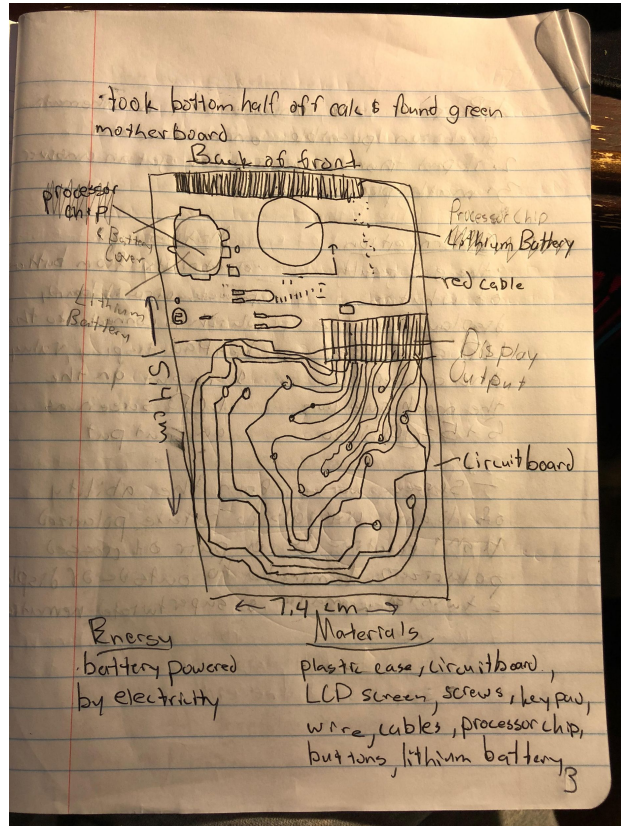 ·took bottom half off calc & found green
motherboard
Back of front
processor
chip
& Battery
Cover
Lithium
Battery
Processor chip
Lithium Battery
red cable
Display
Output
Circuitboard
15.4 cm
7.4 cm
Energy
·battery powered
by electricity
Materials
plastic case, circuitboard,
LCD screen, screws, keypad,
wire, cables, processor chip,
buttons, lithium battery
3